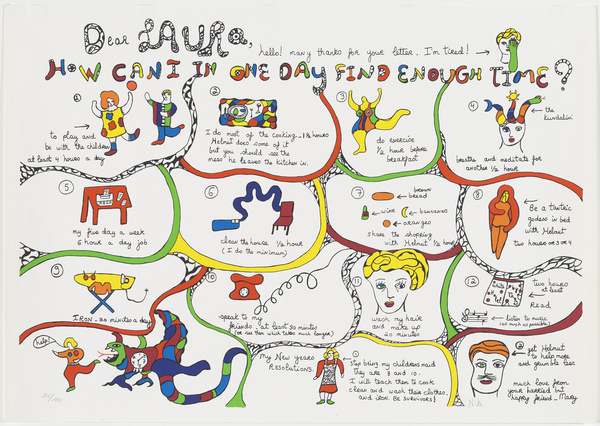 Dear LAURA,
hello! many thanks for your letter. I'm tired!
HOW CAN I IN ONE DAY FIND ENOUGH TIME?
1
to play and
be with the children
at least 4 hours a day
2
I do most of the cooking - 1½ hours
Helmut does some of it
but you should see the
mess he leaves the kitchen in.
3
do exercise
½ hour before
breakfast
4
the
kundalini
breathe and meditate for
another ½ hour
5
my five day a week
6 hour a day job
6
clean the house ½ hour
(I do the minimum)
7
brown
bread
wine
bananas
oranges
share the shopping
with Helmut ½ hour
8
Be a tantric
godess in bed
with Helmut
two hours or 3 or 4
9
IRON - 30 minutes a day
10
speak to my
friends, at least 30 minutes
11
wash my hair
and make up
20 minutes
12
two hours
at least
READ
listen to music
(as much as possible)
help!
My New years
RESOLUTIONS.
1
Stop being my childrens maid
they are 8 and 10.
I will teach them to cook
clean and wash their clothes,
and iron. Be SURVIVORS!
2
get Helmut
to help more
and grumble less
much love from
your harried but
happy friend - Mary
Niki